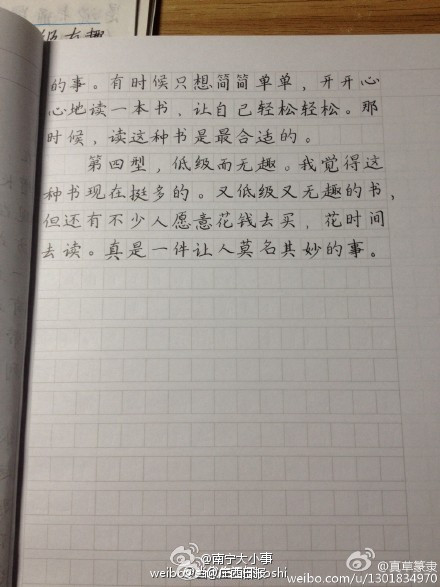 级有趣
的事。有时候只想简简单单，开开心
心地读一本书，让自己轻松轻松。那
时候，读这种书是最合适的。
第四型，低级而无趣。我觉得这
种书现在挺多的。又低级又无趣的书，
但还有不少人愿意花钱去买，花时间
去读。真是一件让人莫名其妙的事。
@南宁大小事
@真草篆隶
weibo.com/u/1301834970